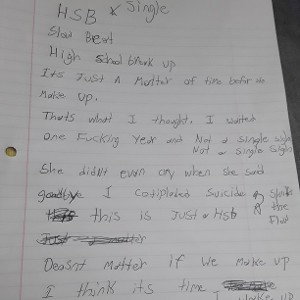 HSB x Single
Slow Beat
High School break up
Its Just A Matter of time before we
Make up.
Thats what I thought, I waited
One Fucking Year and Not a single sign
Not a Single Sign
She didnt even cry when she said
goodbye I Cotiplated Suicide
this is Just a HSB
the
Doesnt Matter if we Make up
I think its time
I wake up